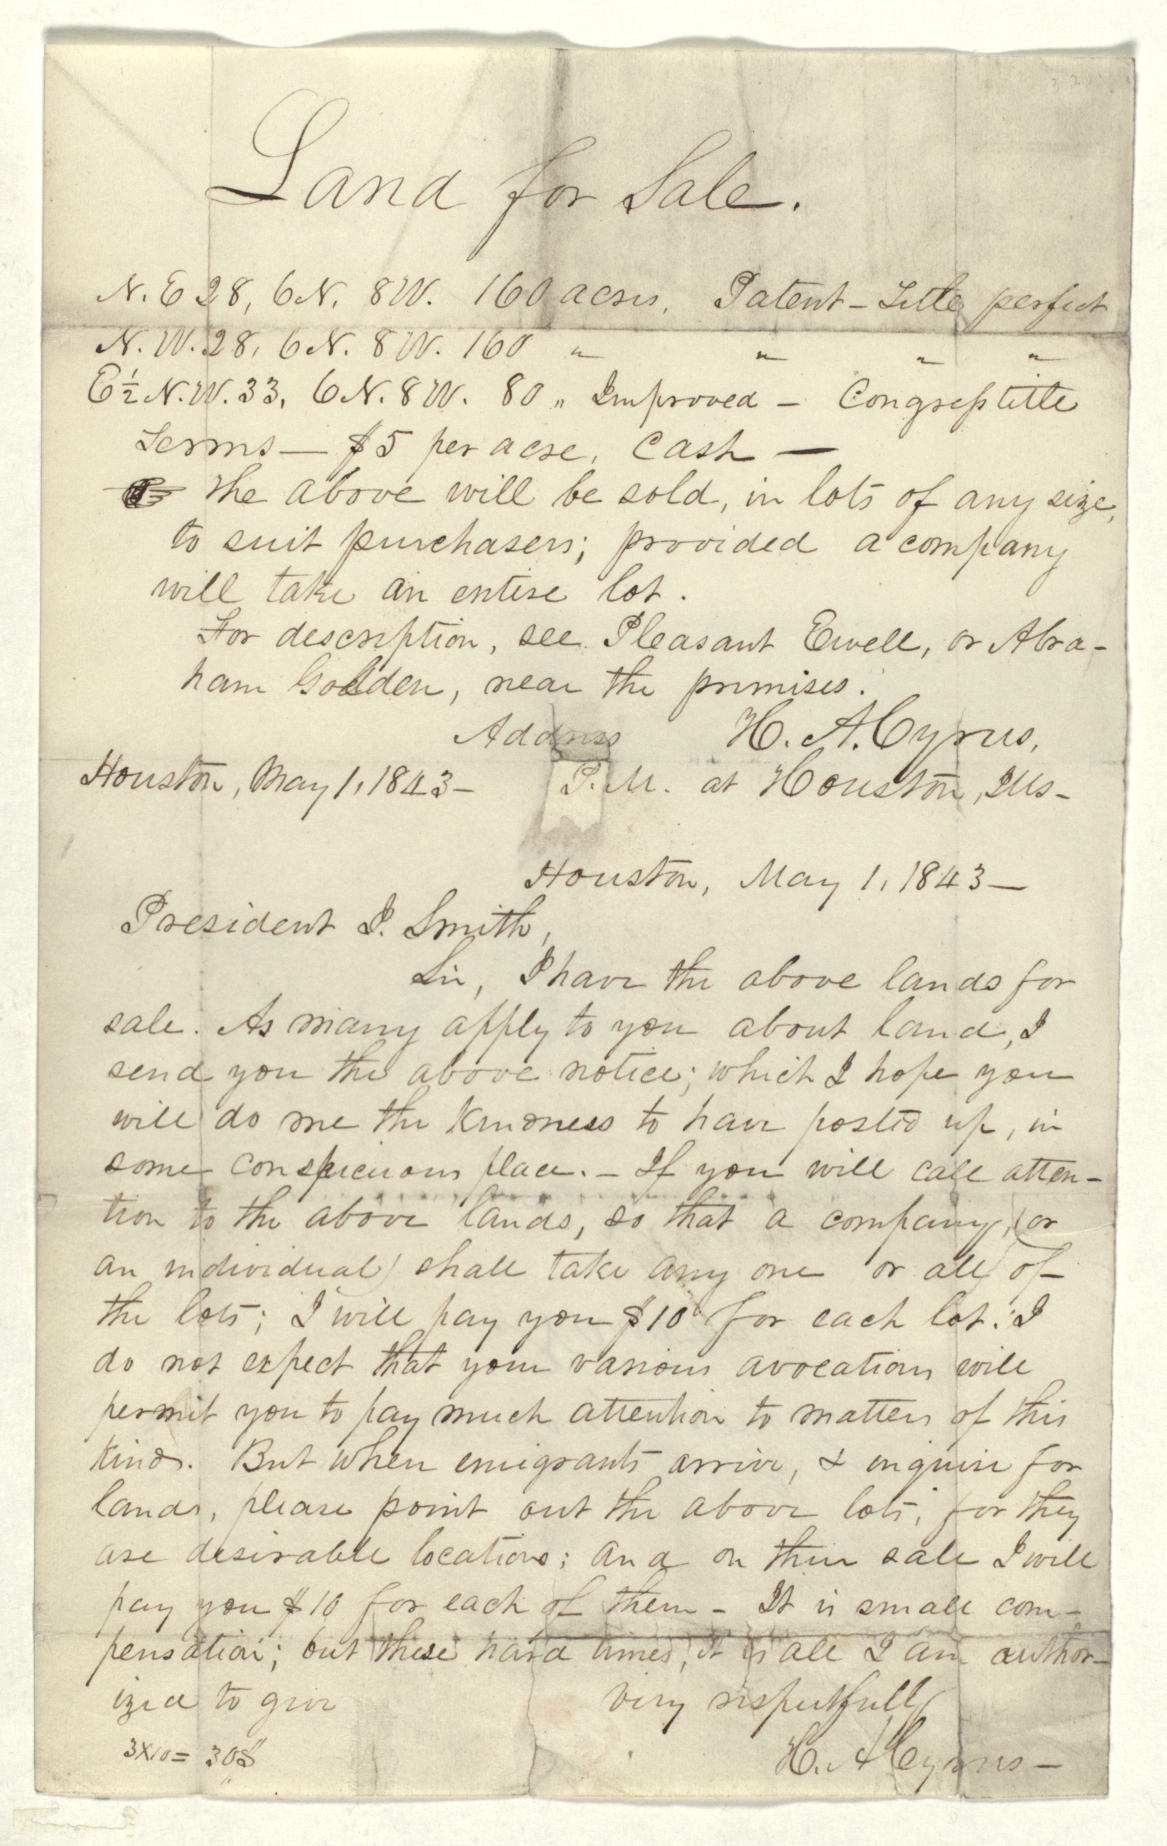 Land for Sale.
N. E 28, 6 N. 8 W. 160 acres, Patent - Title perfect
N. W. 28, 6 N. 8 W. 160 " " " "
E ½ N. W. 33, 6 N. 8 W. 80 " Improved - Congress title
Terms — $5 per acre, Cash —
☞ the above will be sold, in lots of any size,
to suit purchasers; provided a company
will take an entire lot.
For description, see Pleasant Ewell, or Abra-
ham Golden, near the premises.
Address H. A. Cyrus,
Houston, May 1, 1843 - P. M. at Houston, Ills -
Houston, May 1, 1843 —
President J. Smith,
Sir, I have the above lands for
sale. As many apply to you about land, I
send you the above notice; which I hope you
will do me the kindness to have posted up, in
some conspicuous place. - If you will call atten-
tion to the above lands, so that a company, (or
an individual) shall take any one or all of
the lots; I will pay you $10 for each lot. I
do not expect that your various avocations will
permit you to pay much attention to matters of this
kind. But when emigrants arrive, & inquire for
lands, please point out the above lots; for they
are desirable locations; and on their sale I will
pay you $10 for each of them - It is small com-
pensation; but these hard times, it is all I am author-
ized to give Very respectfully
3x10 = 30$ H. A Cyrus —